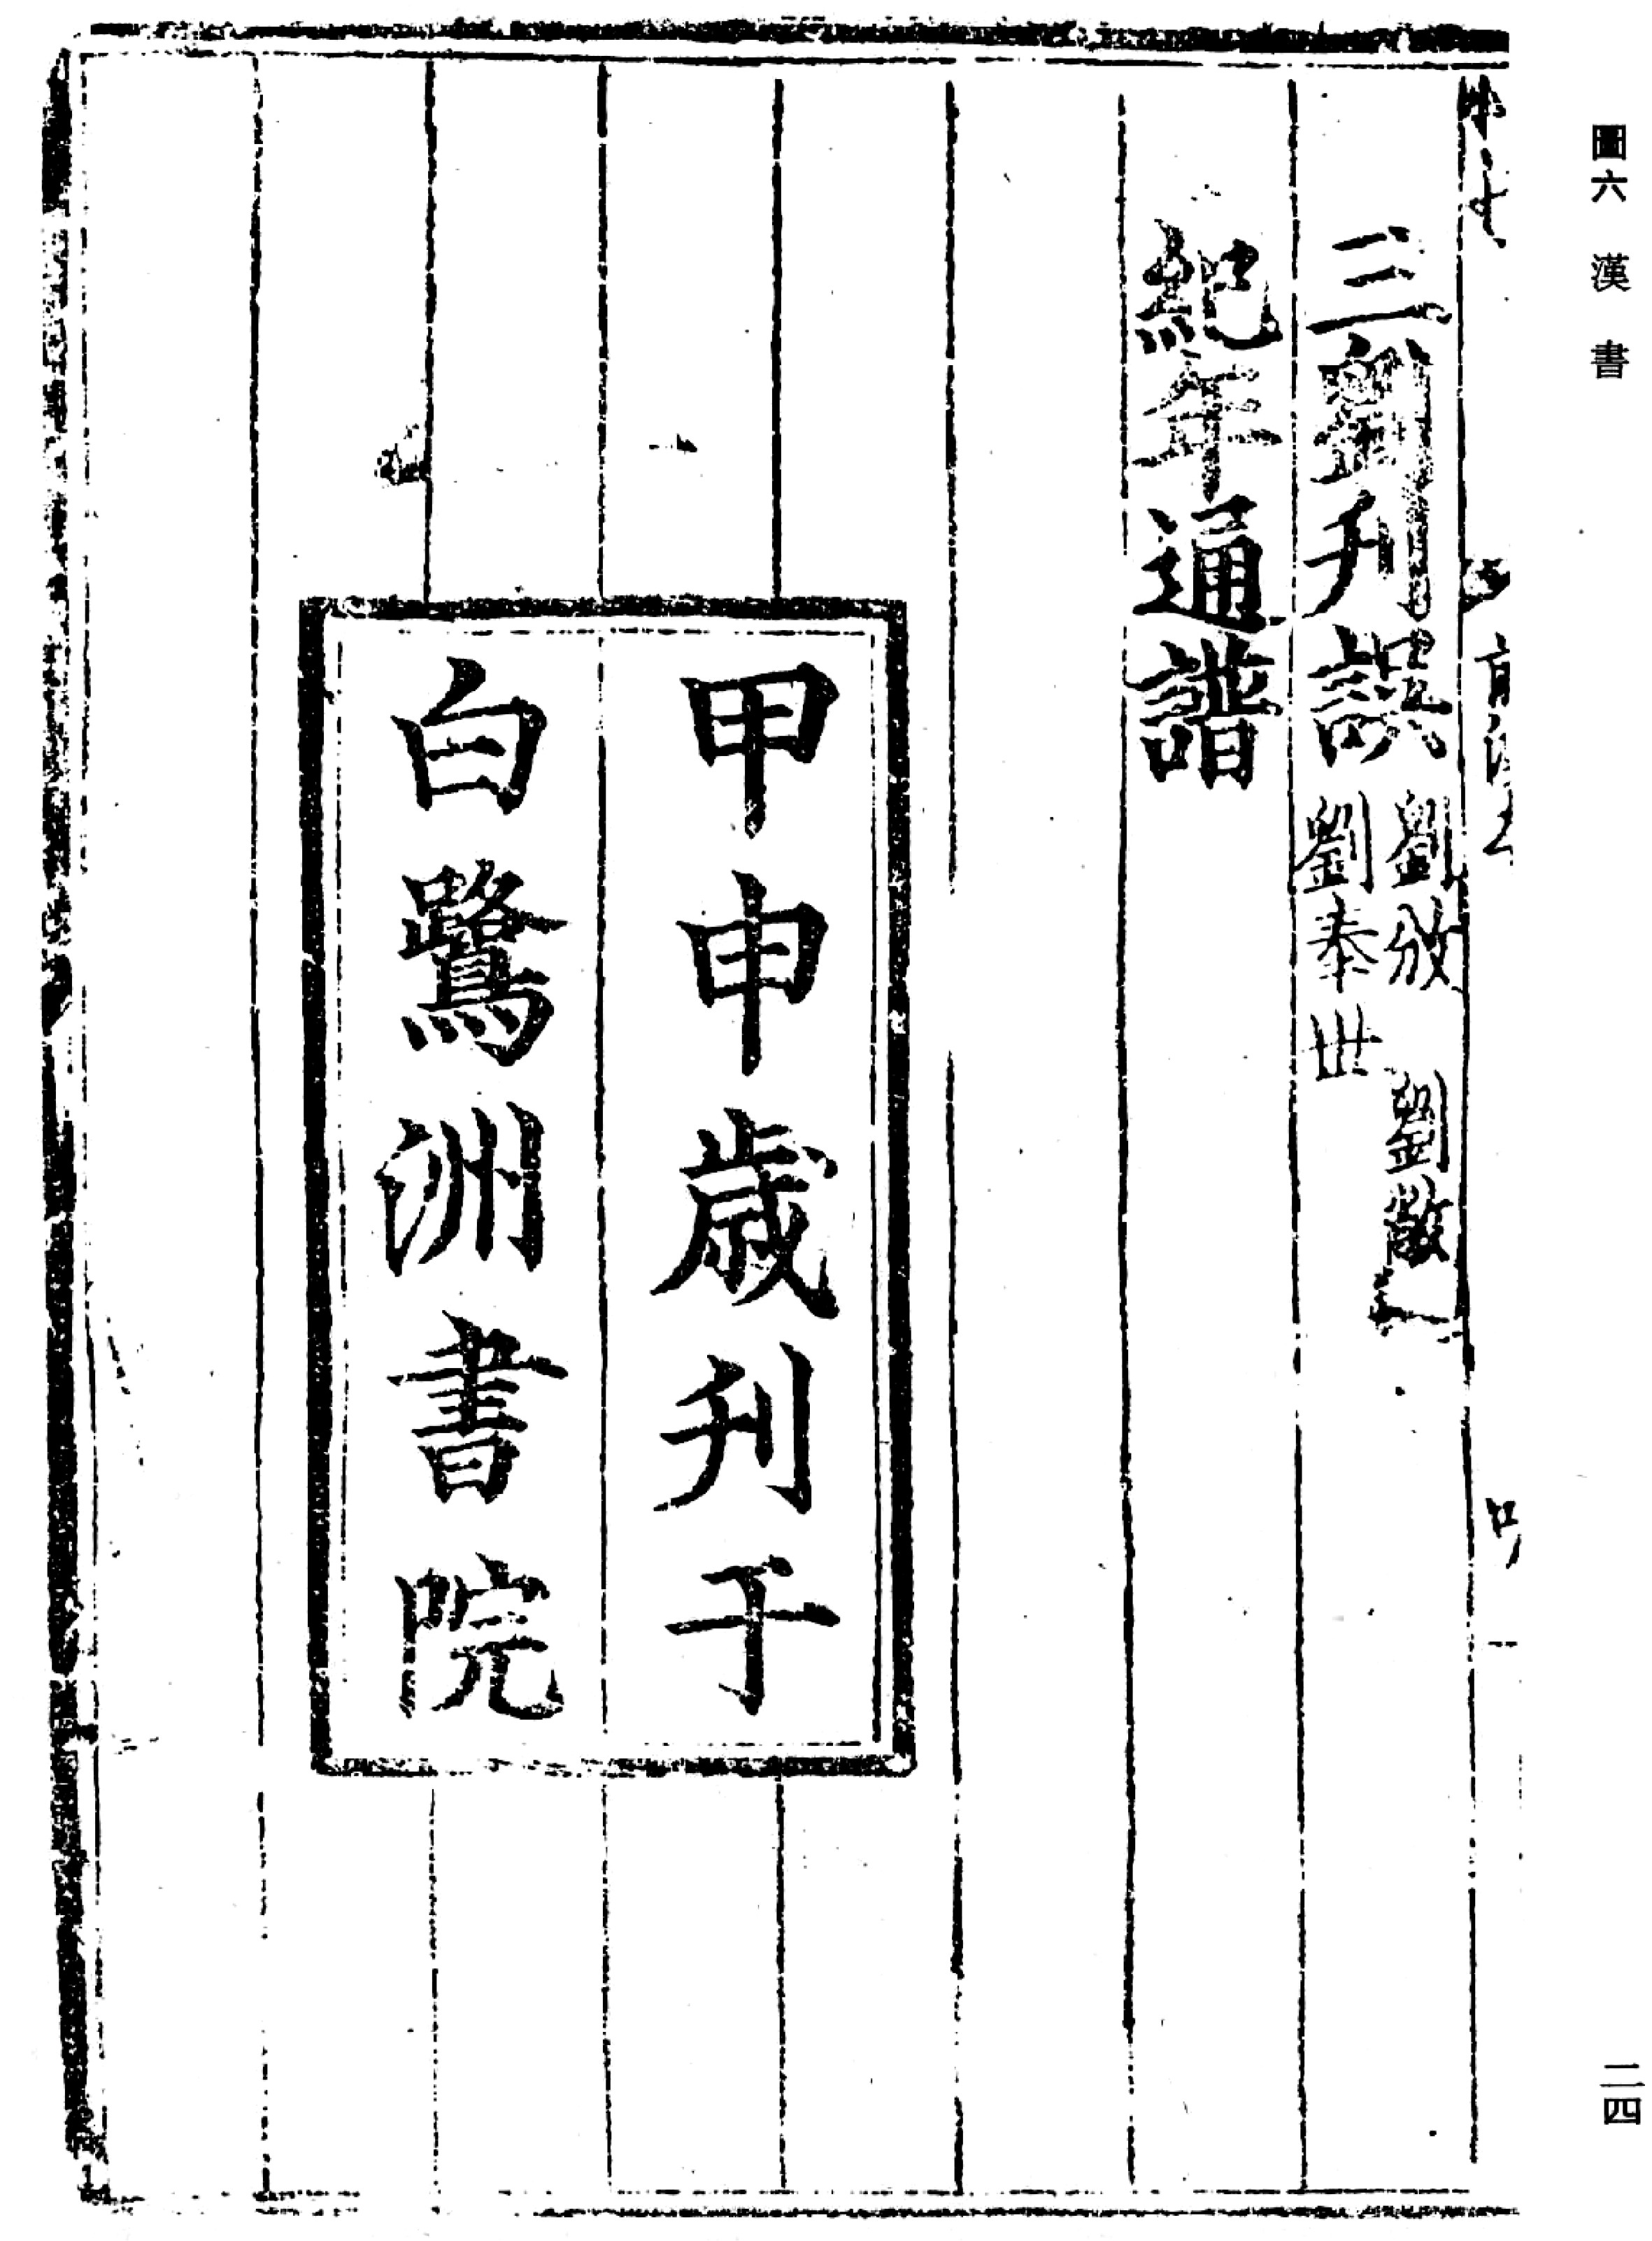 圖六 漢書
二四
三劉刋誤 劉攽 劉敞
劉奉世
紀年通譜
甲申歳刋于
白鷺洲書院